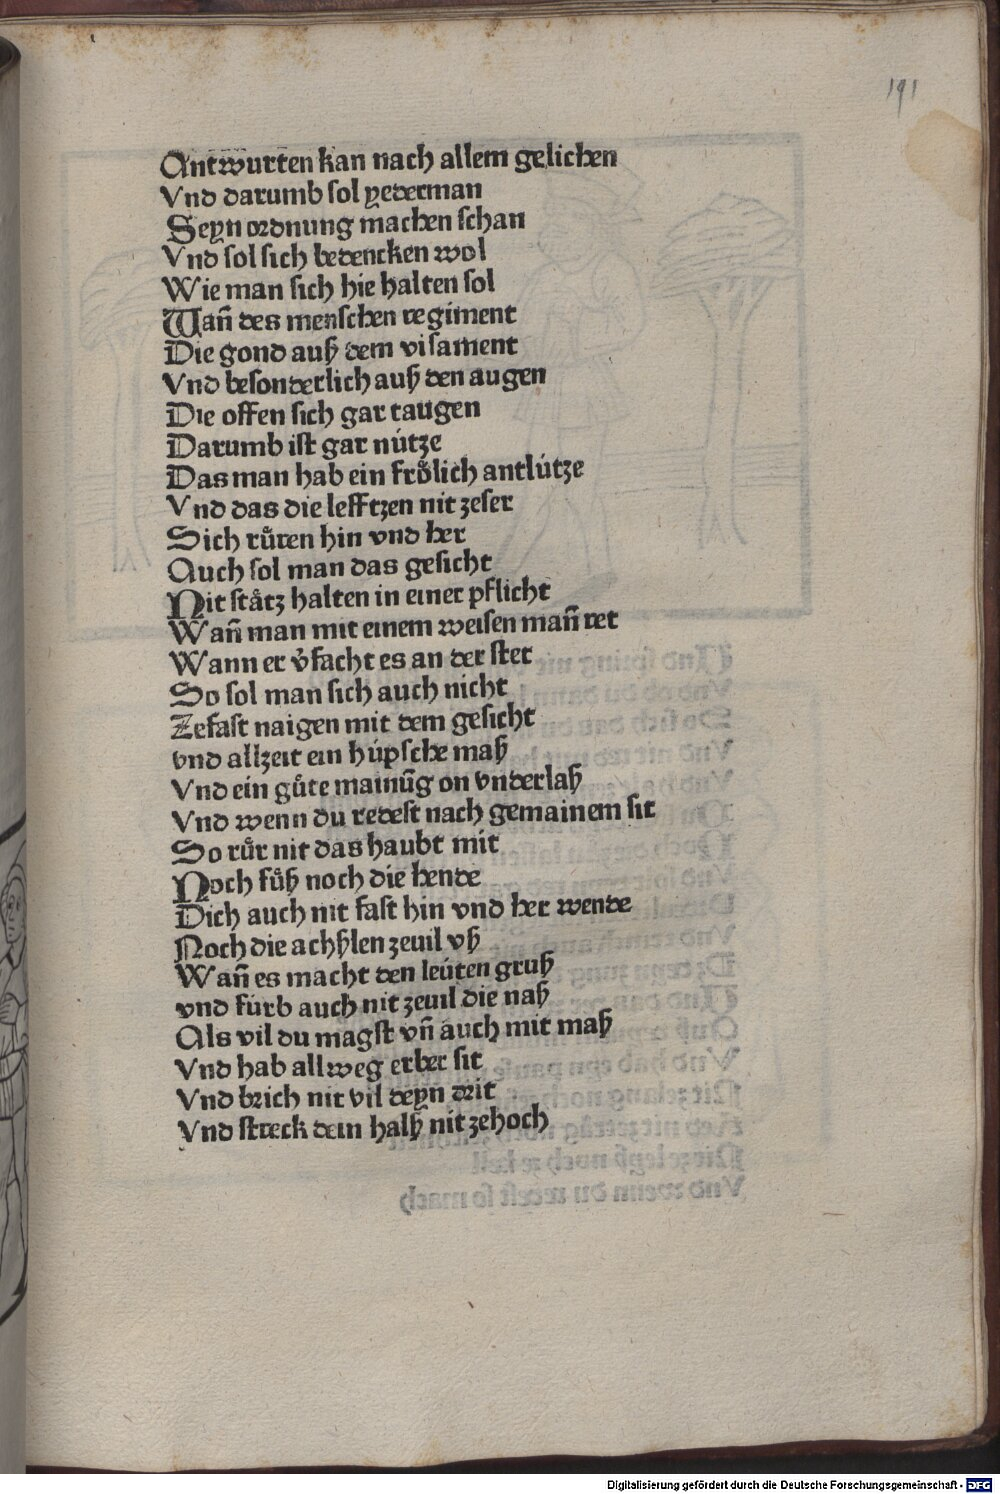 191
Antwurten kan nach allem gelichen
Vnd darumb sol yederman
Seyn ordnung machen schan
Vnd sol sich bedencken wol
Wie man sich hie halten sol
Wañ des menschen regiment
Die gond auß dem visament
Vnd besonderlich auß den augen
Die offen sich gar taugen
Darumb ist gar nútze
Das man hab ein froͤlich antlútze
Vnd das die lefftzen nit zeser
Sich ruͤren hin vnd her
Auch sol man das gesicht
Nit staͤtz halten in einer pflicht
Wañ man mit einem weisen mañ ret
Wann er v̓facht es an der stet
So sol man sich auch nicht
Zefast naigen mit dem gesicht
vnd allzeit ein húpsche maß
Vnd ein guͤte mainūg on vnderlaß
Vnd wenn du redest nach gemainem sit
So ruͤr nit das haubt mit
Noch fuͤß noch die hende
Dich auch nit fast hin vnd her wende
Noch die achßlen zeuil vß
Wañ es macht den leúten gruß
vnd fúrb auch nit zeuil die naß
Als vil du magst vñ auch mit maß
Vnd hab allweg erber sit
Vnd brich nit vil deyn drit
Vnd streck dein halß nit zehoch
Digitalisierung gefördert durch die Deutsche Forschungsgemeinschaft - DFG